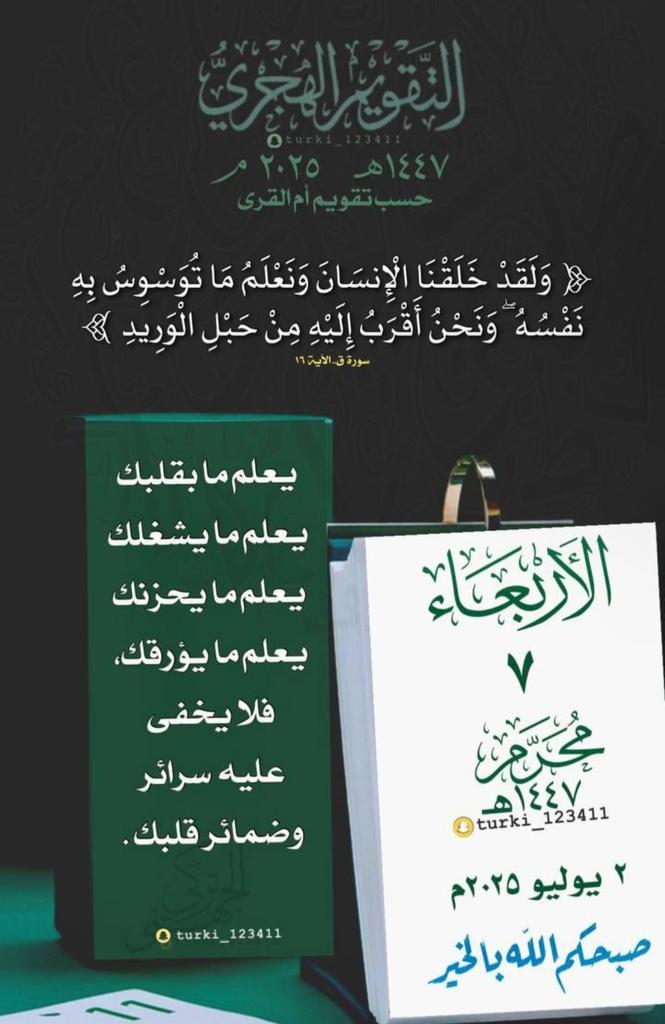 التقويم الهجري
turki_123411
١٤٤٧هـ ٢٠٢٥ م
حسب تقويم أم القرى
﴿ وَلَقَدْ خَلَقْنَا الْإِنسَانَ وَنَعْلَمُ مَا تُوَسْوِسُ بِهِ
نَفْسُهُ ۖ وَنَحْنُ أَقْرَبُ إِلَيْهِ مِنْ حَبْلِ الْوَرِيدِ ﴾
سورة ق-الآية ١٦
يعلم ما بقلبك
يعلم ما يشغلك
يعلم ما يحزنك
يعلم ما يؤرقك،
فلا يخفى
عليه سرائر
وضمائر قلبك.
turki_123411
الأَربعَاء
٧
مُحَرَّم
١٤٤٧هـ
turki_123411
٢ يوليو ٢٠٢٥م
صبحكم الله بالخير